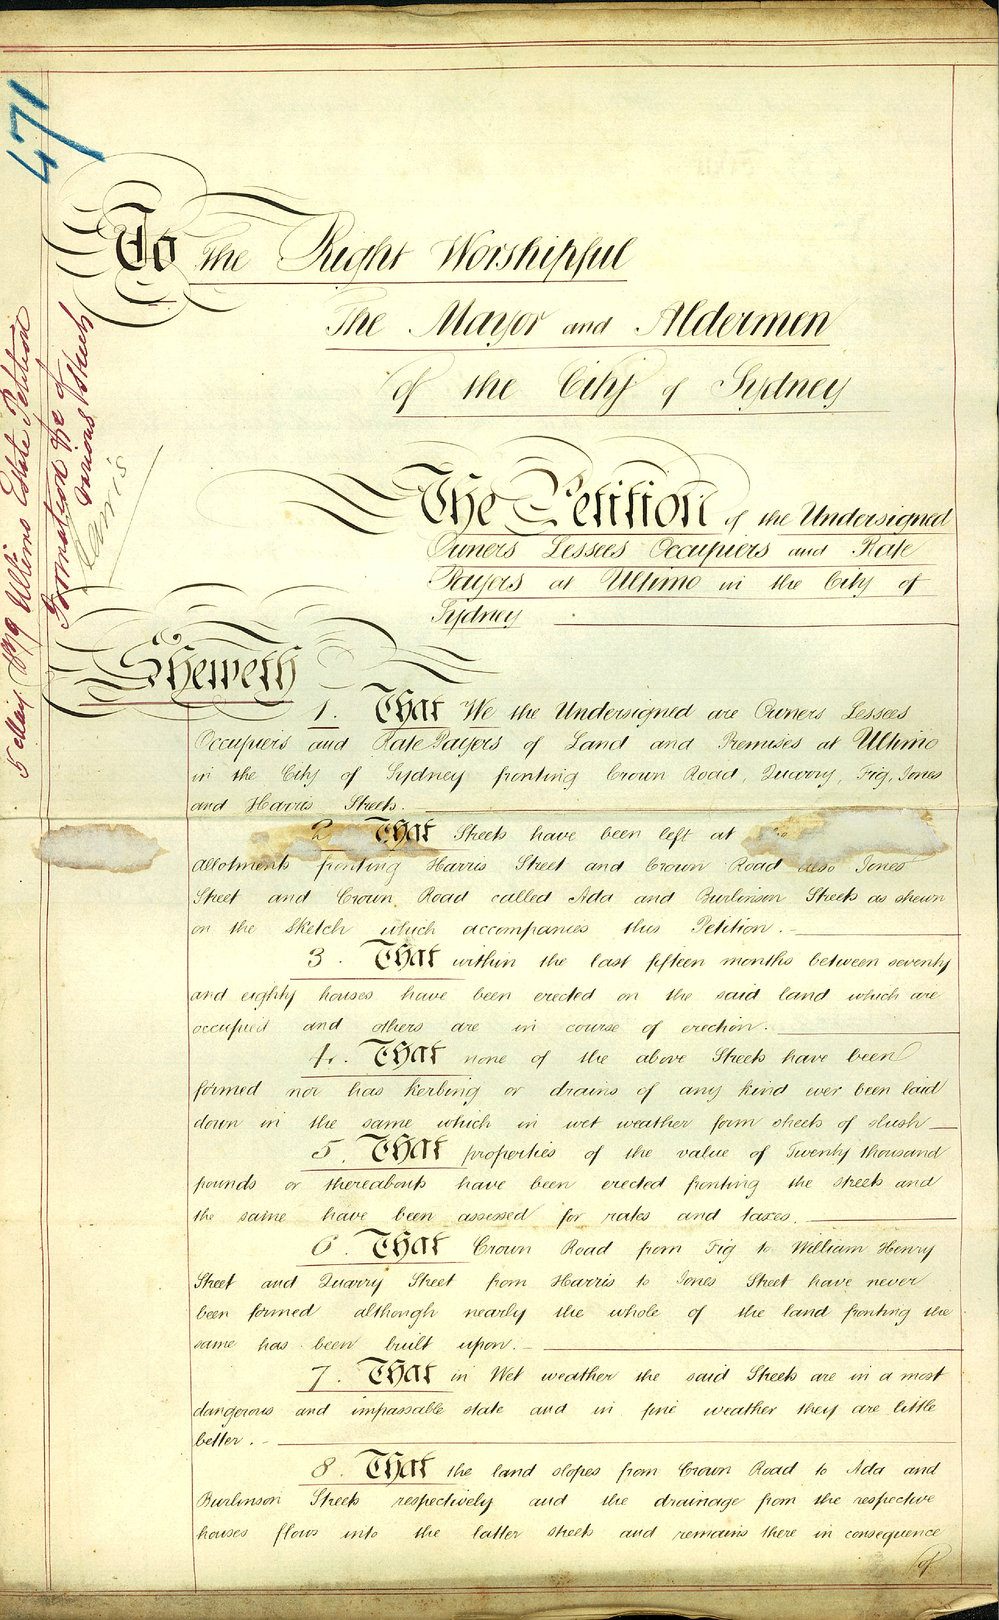 471
5 May 1879 Ultimo Estate Petition
Formation &c of
various Streets
Harris
To The Right Worshipful
The Mayor and Aldermen
of the City of Sydney
The Petition of the Undersigned
Owners Lessees Occupiers and Rate
Payers at Ultimo in the City of
Sydney
Sheweth
1. That We the Undersigned are Owners Lessees
Occupiers and Rate Payers of Land and Premises at Ultimo
in the City of Sydney fronting Crown Road, Quarry, Fig, Jones
and Harris Streets.
2 That Streets have been left at
allotments fronting Harris Street and Crown Road also Jones
Street and Crown Road called Ada and Burlinson Streets as shewn
on the Sketch which accompanies this Petition.
3. That within the last fifteen months between seventy
and eighty houses have been erected on the said land which are
occupied and others are in course of erection.
4. That none of the above Streets have been
formed nor has Kerbing or drains of any kind ever been laid
down in the same which in wet weather form sheets of slush
5. That properties of the value of Twenty thousand
pounds or thereabouts have been erected fronting the streets and
the same have been assessed for rates and taxes.
6. That Crown Road from Fig to William Henry
Street and Quarry Street from Harris to Jones Street have never
been formed although nearly the whole of the land fronting the
same has been built upon.
7. That in Wet weather the said Streets are in a most
dangerous and impassable state and in fine weather they are little
better.
8. That the land slopes from Crown Road to Ada and
Burlinson Streets respectively and the drainage from the respective
houses flows into the latter streets and remains there in consequence
of